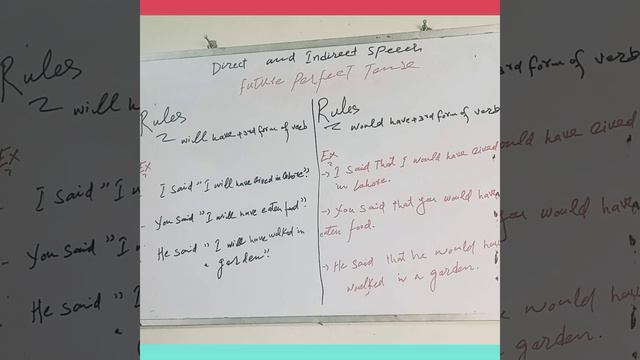 Direct and Indirect Speech
Future Perfect Tense
Rules
will have + 3rd form of verb
Ex
I said "I will have lived in Lahore".
You said "I will have eaten food".
He said "I will have walked in
a garden".
Rules
would have + 3rd form of verb
Ex
→ I said that I would have lived
in Lahore.
→ You said that you would have
eaten food.
→ He said that he would have
walked in a garden.